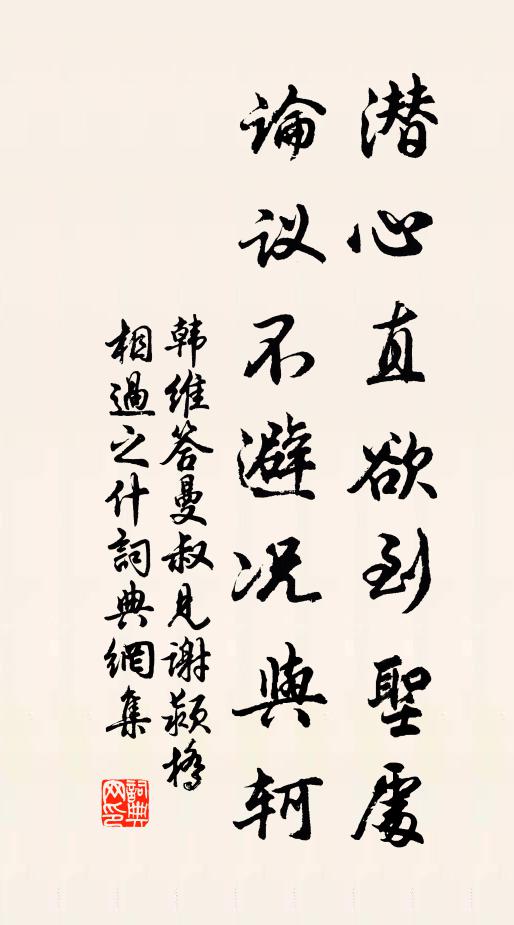 潜心直欲到聖處
论议不避况與轲
韩维答曼叔见谢颍桥
相過之什詞典網集
詞典网印